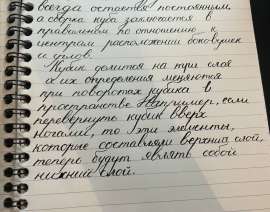 всегда остается постоянным,
а сборка куба заключается в
правильном по отношению к
центрам расположении
и углов.
Кубик делится на три слоя
их определения меняются
при поворотах кубика в
пространстве. Например, если
перевернуть кубик вверх
ногами, то эти элементы,
которые составляли верхний слой,
теперь будут являть собой
нижний слой.